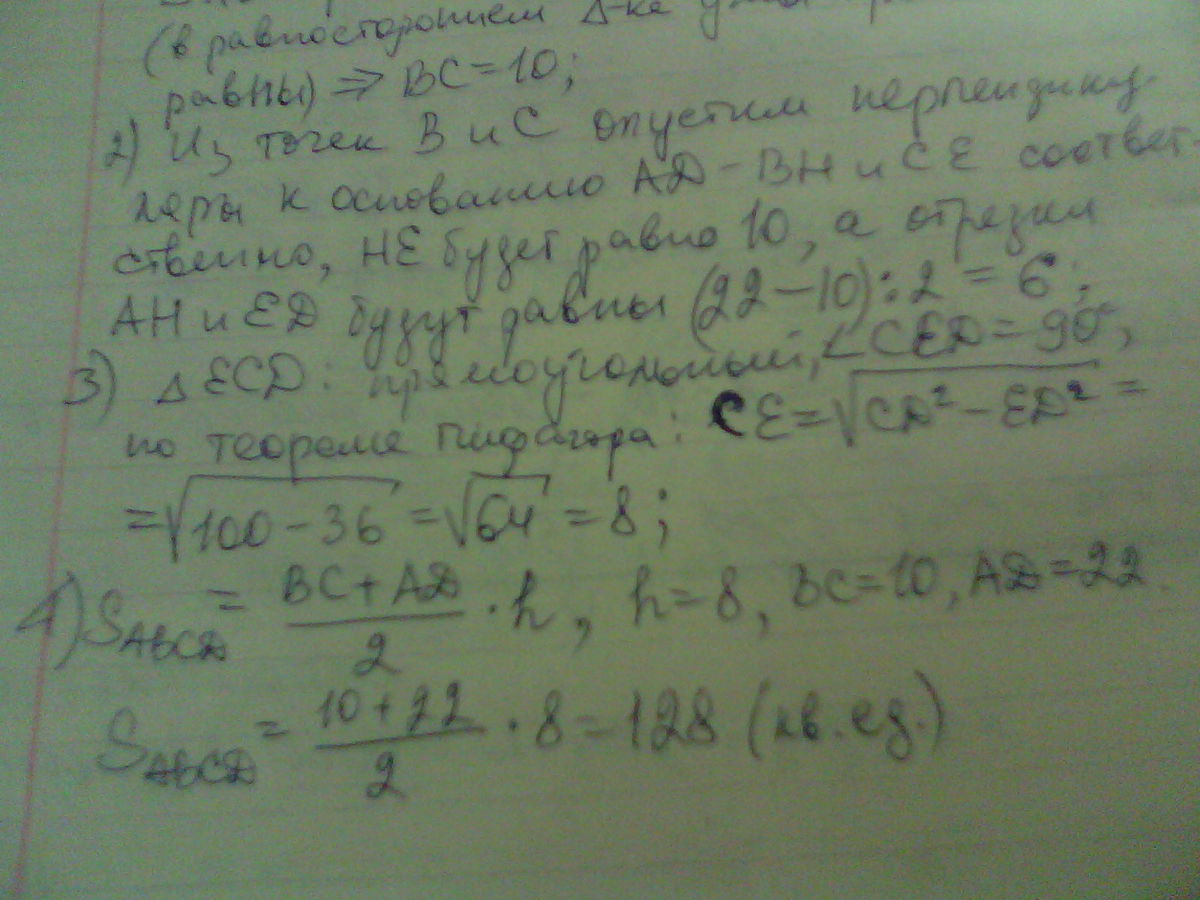 (в равностороннем Δ-ке
равны) ⇒ BC=10;
2) Из точек B и C опустим перпендику-
ляры к основанию AD – BH и CE соответ-
ственно, HE будет равно 10, а отрезки
AH и ED будут равны (22–10):2=6;
3) ΔECD: прямоугольный, ∠CED=90°,
по теореме Пифагора: CE=√CD²–ED² =
=√100–36 =√64 =8;
4) S_ABCD = BC+AD/2 · h, h=8, BC=10, AD=22.
S_ABCD = 10+22/2 · 8=128 (кв.ед.)